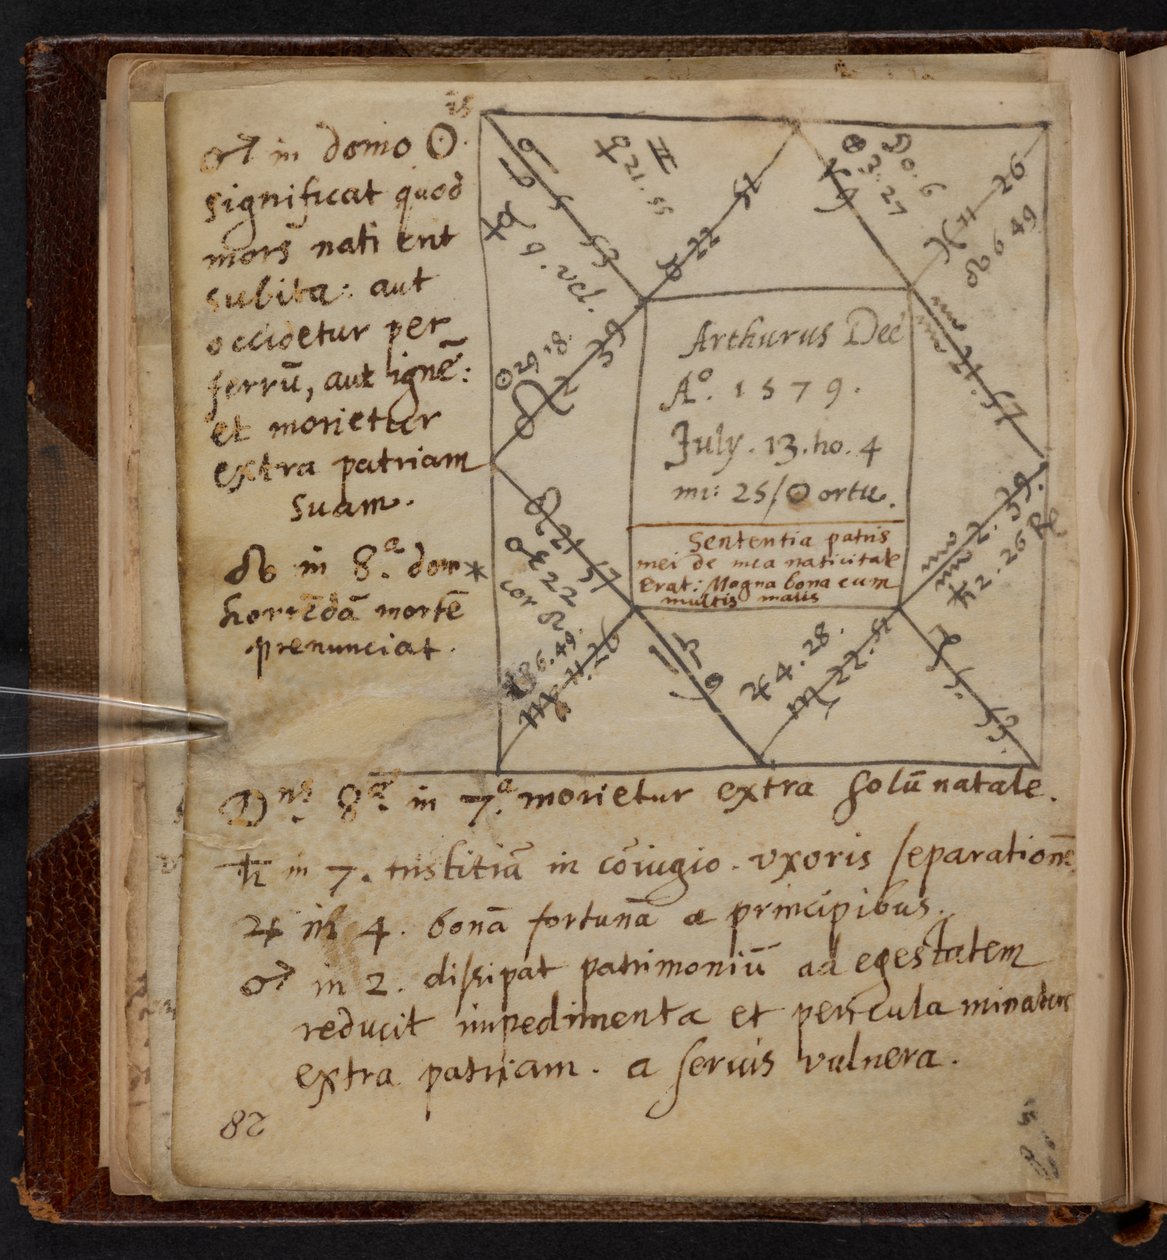 ♂ in domo ☉
significat quod
mors nati erit
subita: aut
occidetur per
ferrū, aut ignē:
et morietur
extra patriam
suam.
☋ in 8.ᵃ dom*
horrēdā mortē
prenunciat.
♊
☿ 21. 55
♉ 22 51
⊕ 3. 27
☽ 0. 6
♓ 11 26
☊ 6 49
♋ 5 53
♀ 9. vel.
☉ 29. 18.
♌ 2 39
♒ 5. 17
Arthurus Dee
Aº. 1579.
July. 13. ho. 4
mi: 25/☉ ortu.
Sententia patris
mei de mea nativitate
erat: Magna bona cum
multis malis
♌ 21 17
♂ 22
cor ♌.
☋ 6. 49.
♍ 11. 26
♒ 2. 39.
♄ 2. 26 ℞
♃ 4. 28.
♏ 22. 51
♑ 5. 53.
Dnˢ. 8ᵃ. in 7.ᵃ morietur extra solū natale.
♄ in 7. tristitiā in cōiugio. uxoris separationē
♃ in 4. bonā fortunā a principibus.
♂ in 2. dissipat patrimoniū ad egestatem
reducit impedimenta et pericula minatur
extra patriam. a servis vulnera.
82